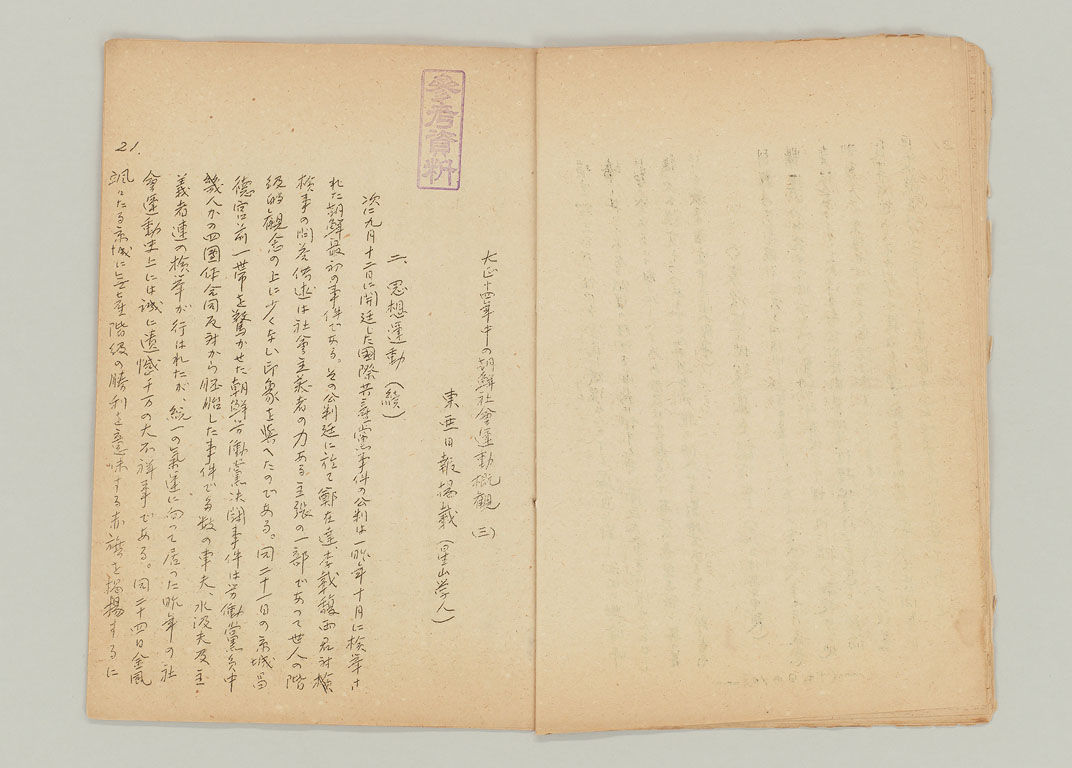 参考資料
大正十四年中の朝鮮社會運動概観（三）
東亜日報掲載（星山学人）
二、思想運動（續）
次に九月十二日に開廷した国際共産黨事件の公判は一昨年十月に検挙さ
れた朝鮮最初の事件である。その公判廷に於て鄭在達、李載馥両君対検
検事の問答供述は社會主義者の力ある主張の一部であって世人の階
級的観念の上に少くない印象を與へたのである。同二十一日の京城昌
德宮前一帯を驚かせた朝鮮労働黨決闘事件は労働黨員中
幾人かの四團体合同反対から胚胎した事件で多数の車夫、水汲夫及主
義者連の検挙が行はれたが、統一の氣運に向って居った昨年の社
會運動史上には誠に遺憾千万の大不祥事である。同二十四日金風
颯々たる京城に無産階級の勝利を意味する赤旗を掲揚するに
21.